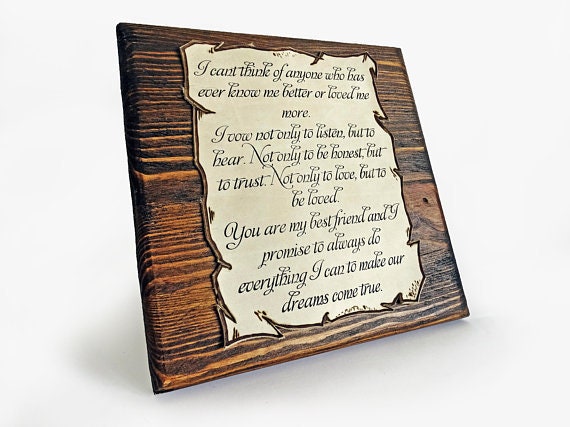 I cant think of anyone who has
ever know me better or loved me
more.
I vow not only to listen, but to
hear. Not only to be honest, but
to trust. Not only to love, but to
be loved.
You are my best friend and I
promise to always do
everything I can to make our
dreams come true.